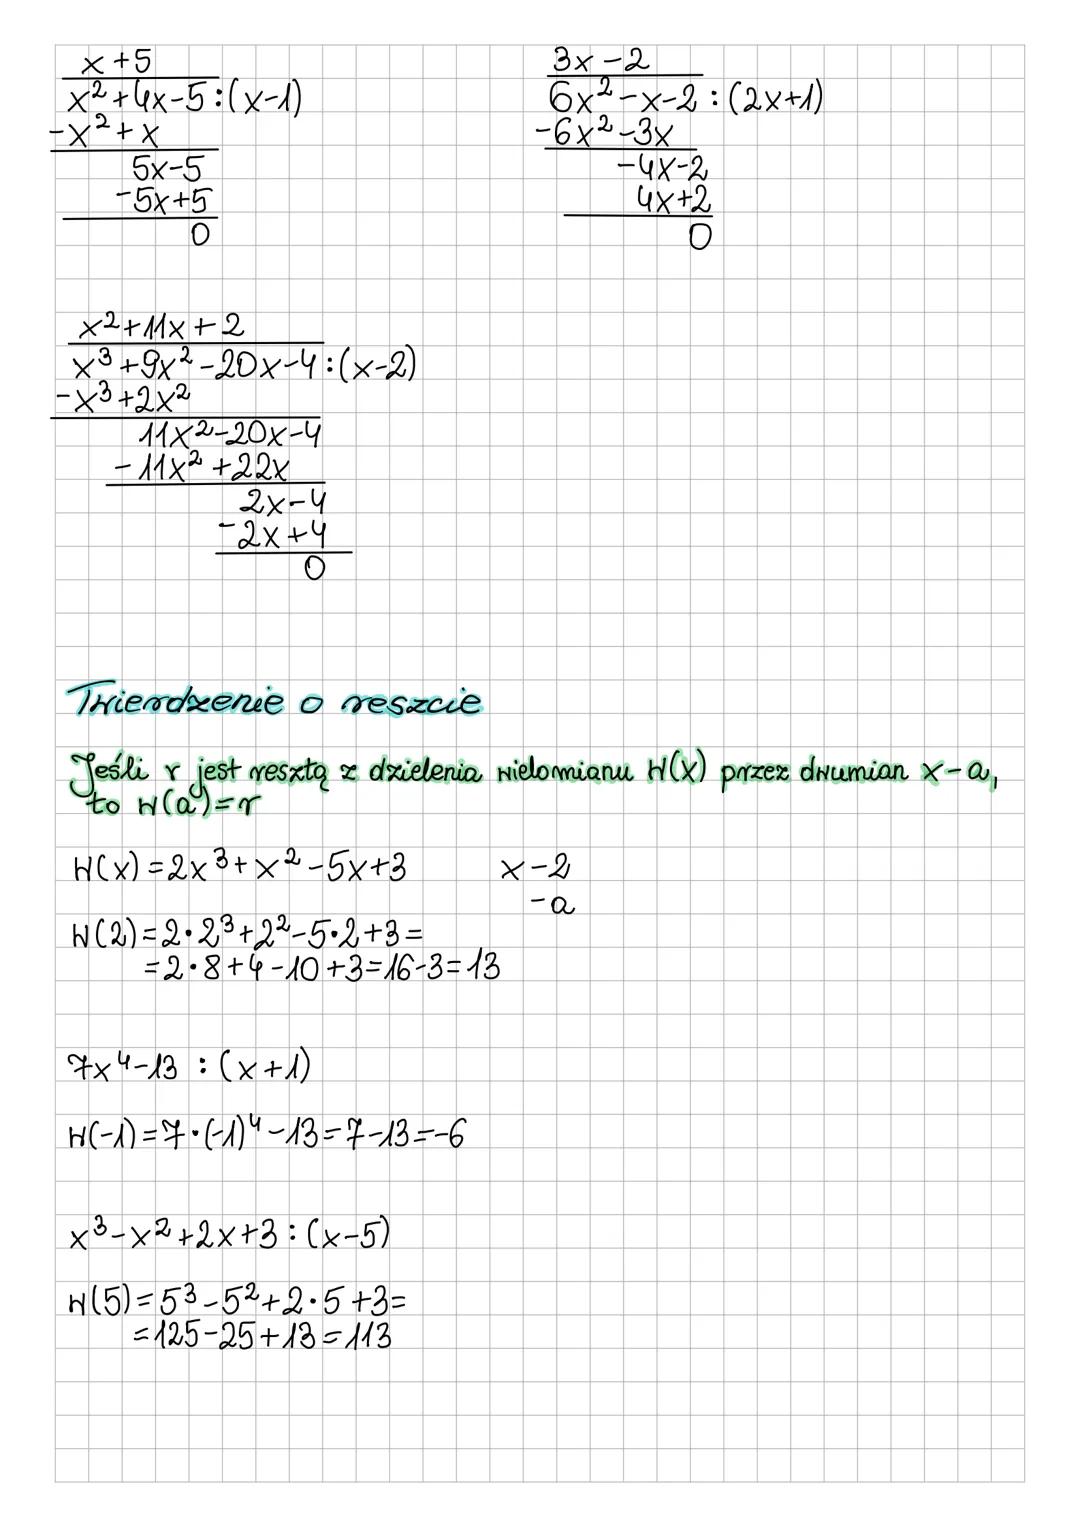 x+5
x²+4x-5:(x-1)
-x²+x
5x-5
-5x+5
0
3x-2
6x²-x-2:(2x+1)
-6x²-3x
-4x-2
4x+2
0
x²+11x+2
x³+9x²-20x-4:(x-2)
-x³+2x²
11x²-20x-4
-11x²+22x
2x-4
-2x+4
0
Twierdzenie o reszcie
Jeśli r jest resztą z dzielenia wielomianu W(x) przez dwumian x-a,
to W(a)=r
W(x)=2x³+x²-5x+3 x-2
-a
W(2)=2·2³+2²-5·2+3=
=2·8+4-10+3=16-3=13
7x⁴-13 :(x+1)
W(-1)=7·(-1)⁴-13=7-13=-6
x³-x²+2x+3:(x-5)
W(5)=5³-5²+2·5+3=
=125-25+13=113